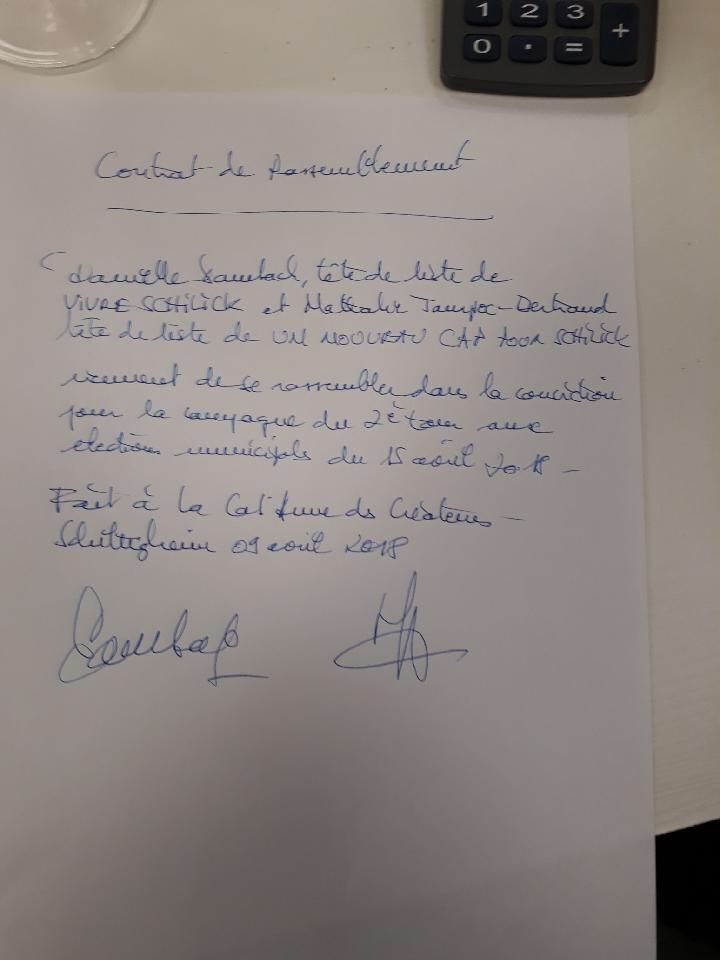 1 2 3 +
0 . =
Contrat de Rassemblement
Danielle Dambach, tête de liste de
VIVRE SCHILICK et Nathalie Jampoc-Bertrand
tête de liste de UN NOUVEAU CAP POUR SCHILICK
viennent de se rassembler dans la conviction
pour la campagne du 2è tour aux
élections municipales du 15 avril 2018 -
Fait à la Cat' fume des Créateurs -
Schiltigheim 09 avril 2018
Dambach